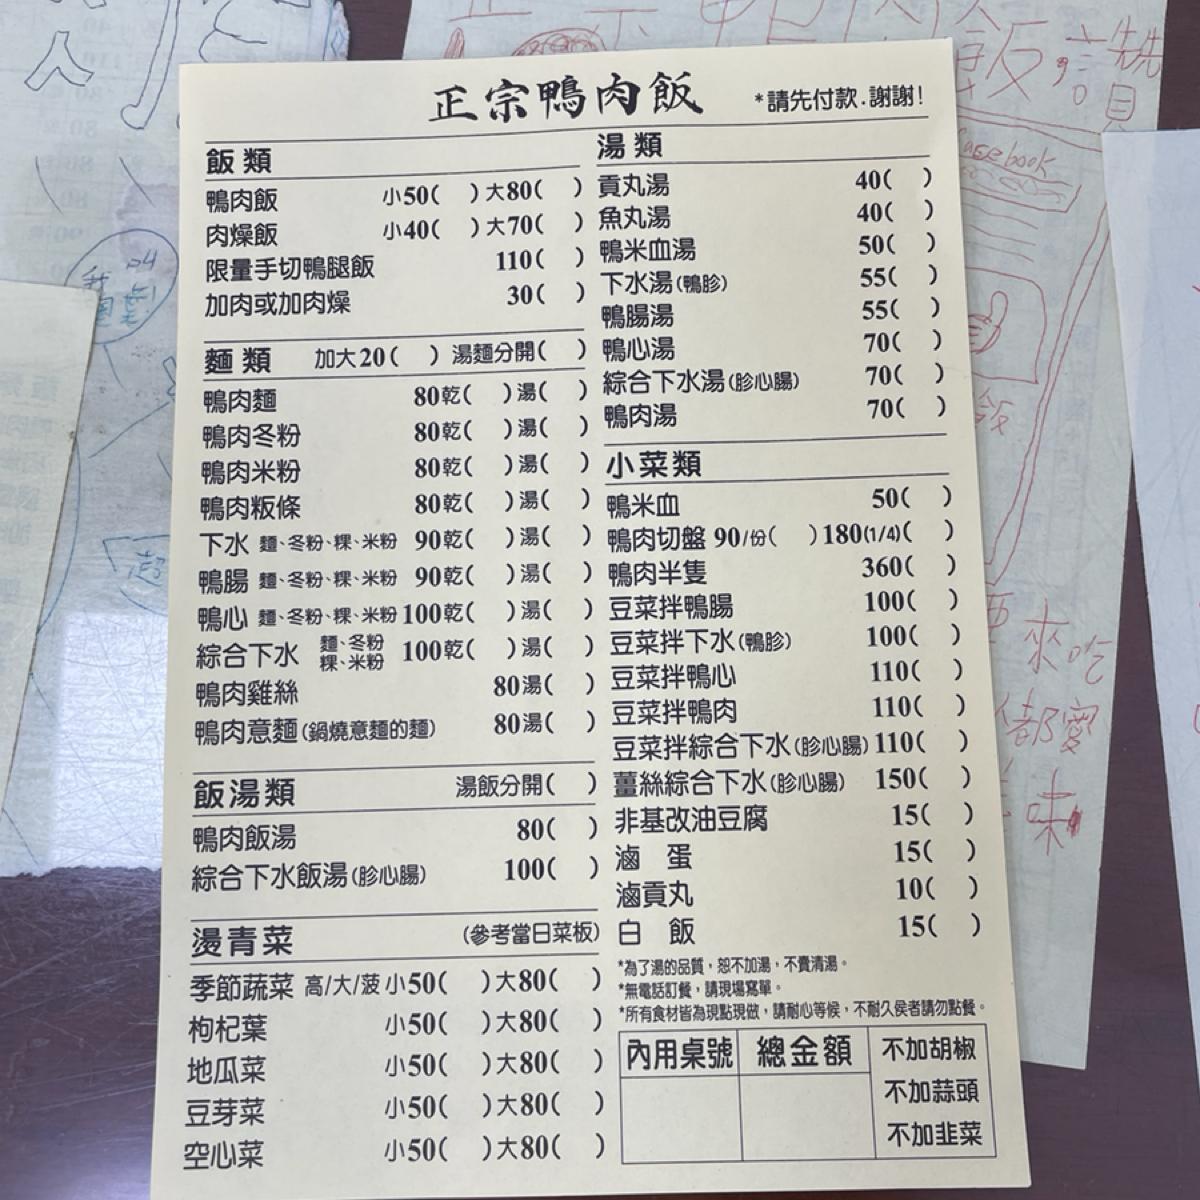 正宗鴨肉飯 *請先付款.謝謝!
飯類
鴨肉飯 小50( )大80( )
肉燥飯 小40( )大70( )
限量手切鴨腿飯 110( )
加肉或加肉燥 30( )
麵類 加大20( ) 湯麵分開( )
鴨肉麵 80乾( )湯( )
鴨肉冬粉 80乾( )湯( )
鴨肉米粉 80乾( )湯( )
鴨肉粄條 80乾( )湯( )
下水 麵、冬粉、粿、米粉 90乾( )湯( )
鴨腸 麵、冬粉、粿、米粉 90乾( )湯( )
鴨心 麵、冬粉、粿、米粉 100乾( )湯( )
綜合下水 麵、冬粉 粿、米粉 100乾( )湯( )
鴨肉雞絲 80湯( )
鴨肉意麵(鍋燒意麵的麵) 80湯( )
飯湯類 湯飯分開( )
鴨肉飯湯 80( )
綜合下水飯湯(胗心腸) 100( )
燙青菜 (參考當日菜板)
季節蔬菜 高/大/菠 小50( )大80( )
枸杞葉 小50( )大80( )
地瓜菜 小50( )大80( )
豆芽菜 小50( )大80( )
空心菜 小50( )大80( )
湯類
貢丸湯 40( )
魚丸湯 40( )
鴨米血湯 50( )
下水湯(鴨胗) 55( )
鴨腸湯 55( )
鴨心湯 70( )
綜合下水湯(胗心腸) 70( )
鴨肉湯 70( )
小菜類
鴨米血 50( )
鴨肉切盤 90/份( )180(1/4)( )
鴨肉半隻 360( )
豆菜拌鴨腸 100( )
豆菜拌下水(鴨胗) 100( )
豆菜拌鴨心 110( )
豆菜拌鴨肉 110( )
豆菜拌綜合下水(胗心腸) 110( )
薑絲綜合下水(胗心腸) 150( )
非基改油豆腐 15( )
滷 蛋 15( )
滷貢丸 10( )
白 飯 15( )
*為了湯的品質,恕不加湯,不賣清湯。
*無電話訂餐,請現場寫單。
*所有食材皆為現點現做,請耐心等候,不耐久侯者請勿點餐。
內用桌號 總金額 不加胡椒
不加蒜頭
不加韭菜
飯
讚
facebook
飯
來吃
都愛
味
超